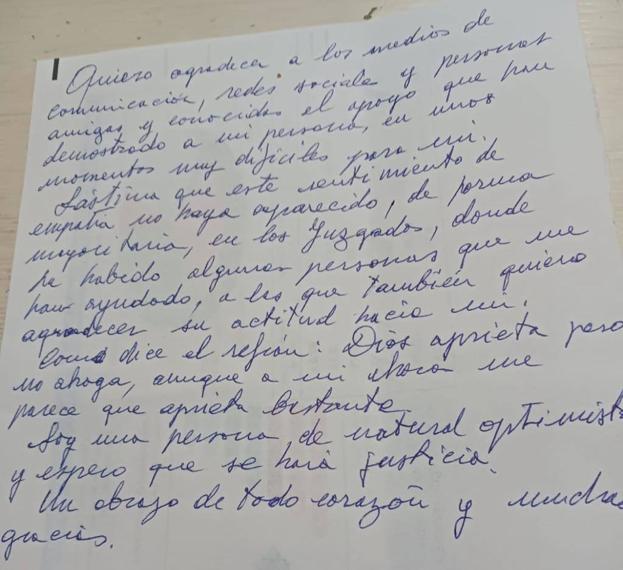 Quiero agradecer a los medios de
comunicación, redes sociales y personas
amigas y conocidas el apoyo que han
demostrado a mi persona, en unos
momentos muy difíciles para mi.
Lástima que este sentimiento de
empatía no haya aparecido, de forma
mayoritaria, en los Juzgados, donde
ha habido algunas personas que me
han ayudado, a las que también quiero
agradecer su actitud hacia mi.
Como dice el refrán: Dios aprieta pero
no ahoga, aunque a mi ahora me
parece que aprieta bastante.
Soy una persona de natural optimista
y espero que se hará justicia.
Un abrazo de todo corazón y muchas
gracias.